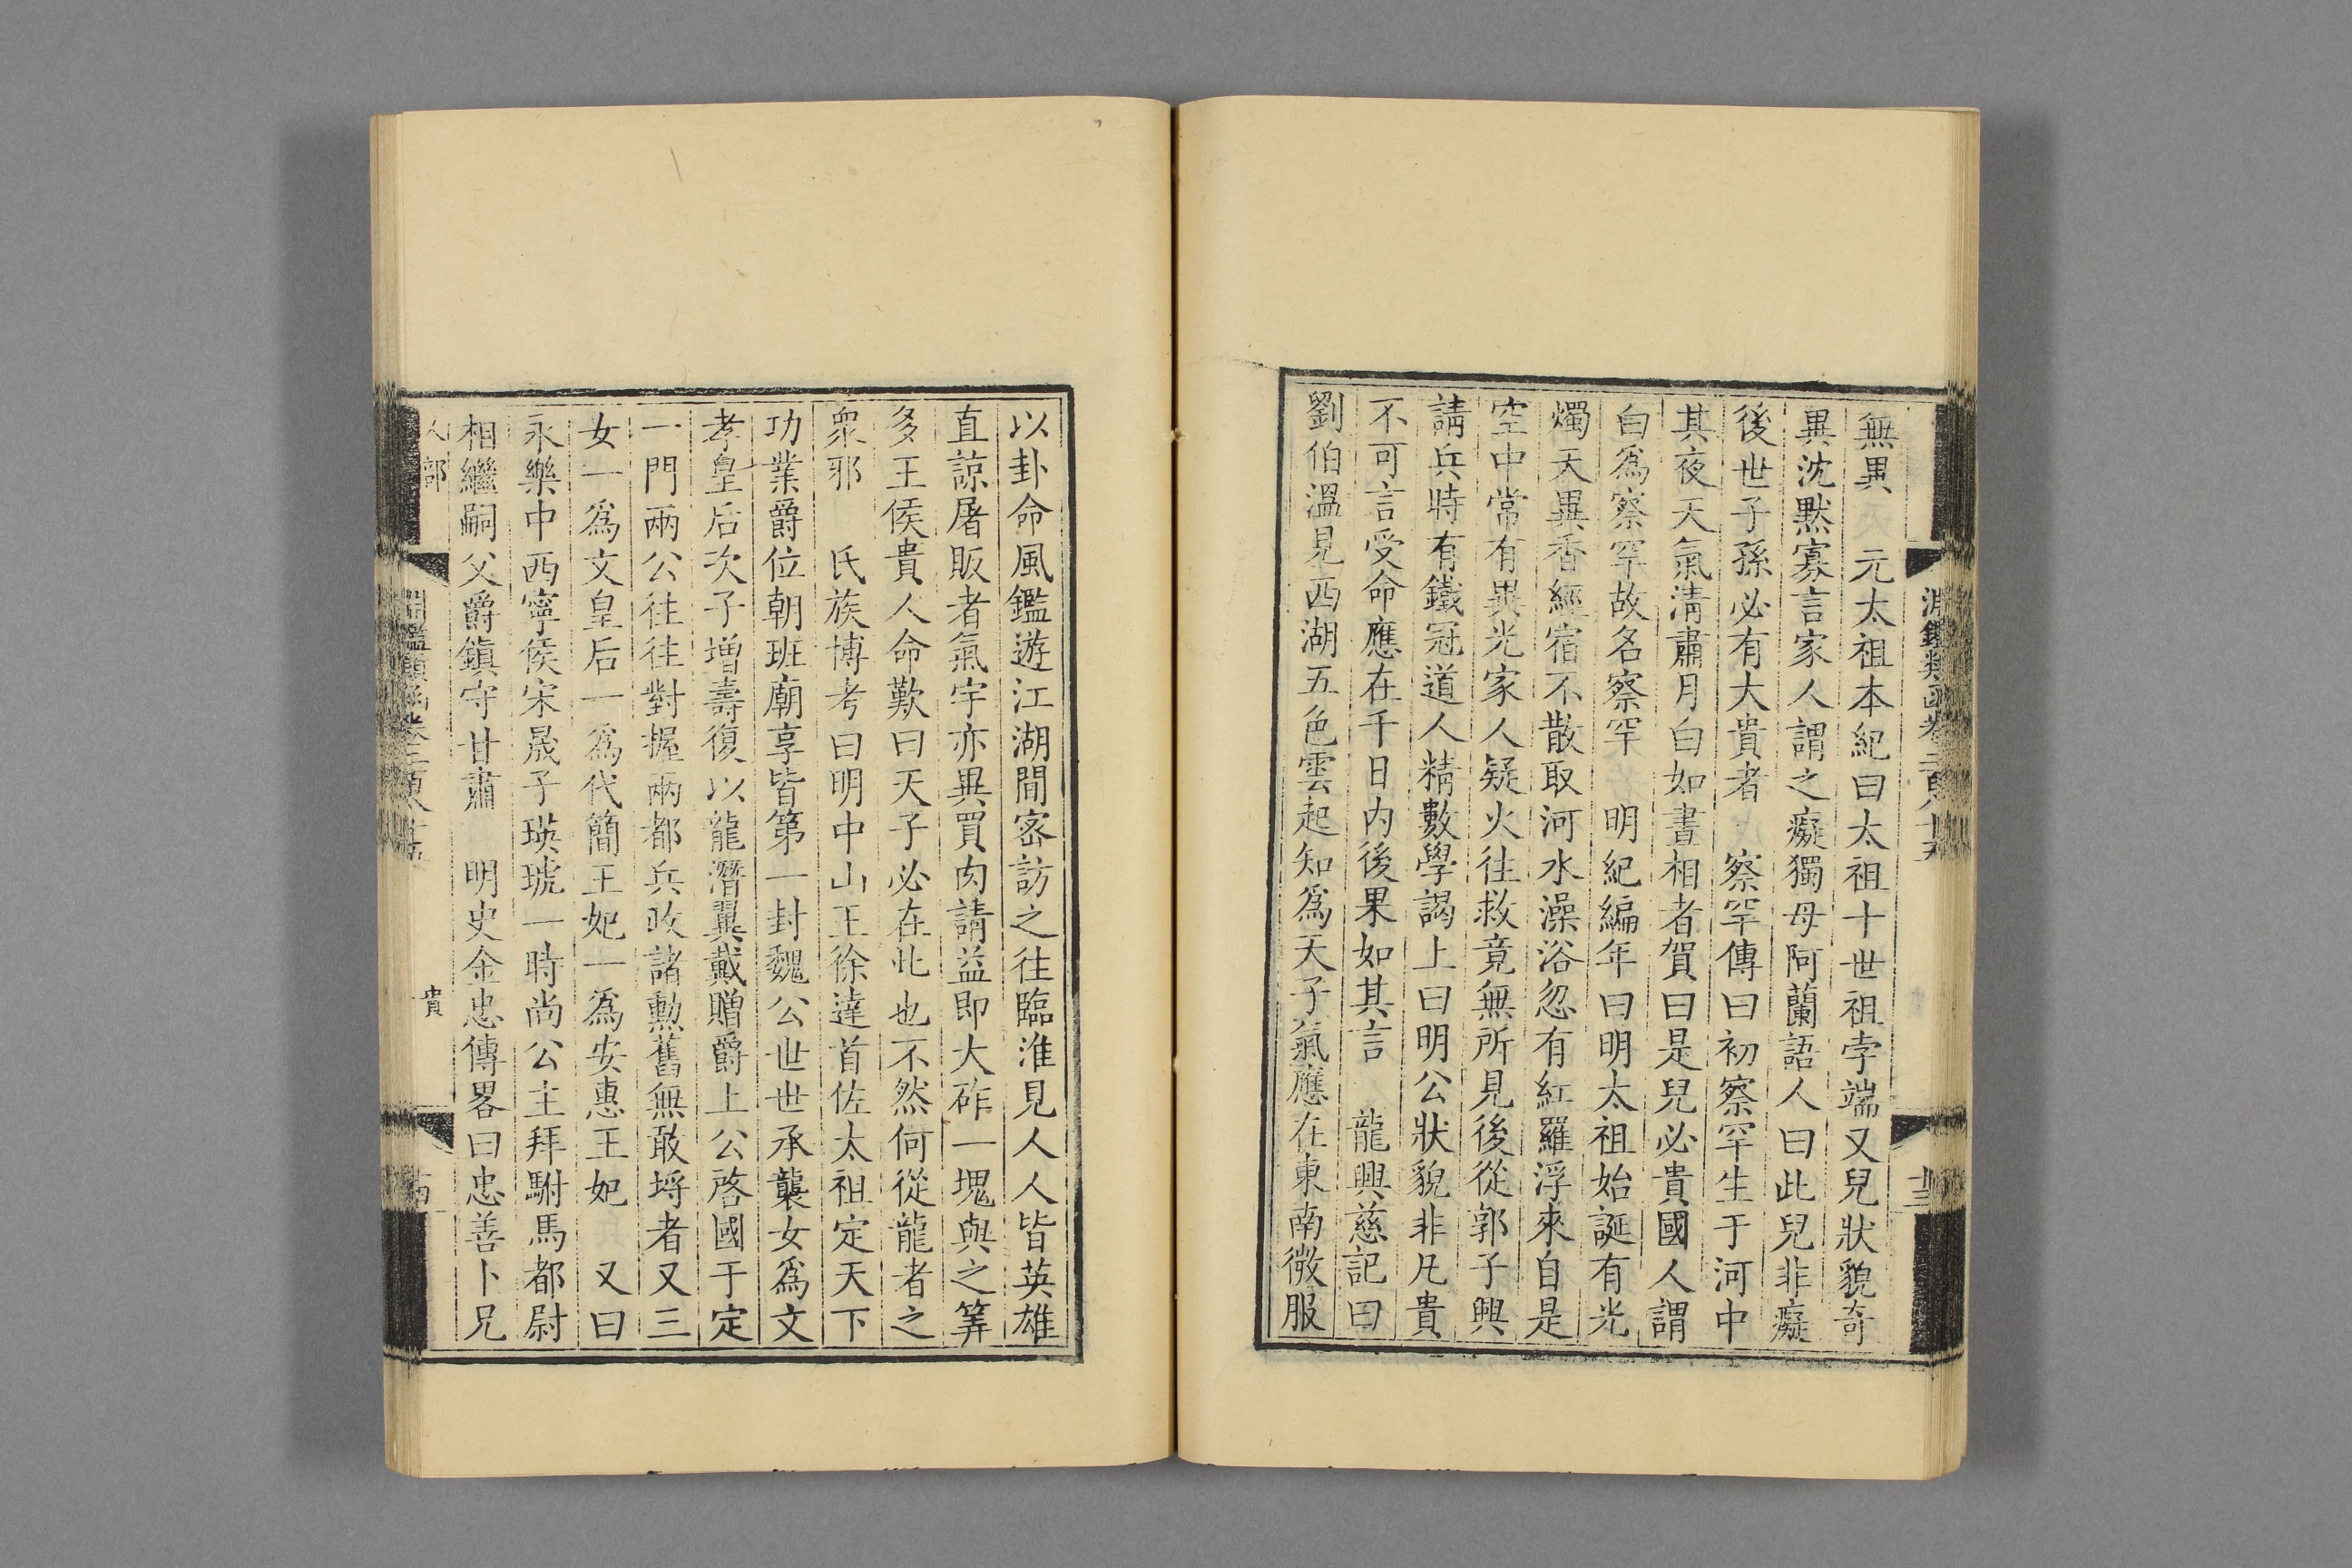 淵鑑類函卷三百十五
十三
無異　元太祖本紀曰太祖十世祖孛端叉兒狀貌奇
異沈默寡言家人謂之癡獨母阿蘭語人曰此兒非癡
後世子孫必有大貴者　察罕傳曰初察罕生于河中
其夜天氣清肅月白如晝相者賀曰是兒必貴國人謂
白爲察罕故名察罕　明紀編年曰明太祖始誕有光
燭天異香經宿不散取河水澡浴忽有紅羅浮來自是
空中常有異光家人疑火往救竟無所見後從郭子興
請兵時有鐵冠道人精數學謁上曰明公狀貌非凡貴
不可言受命應在千日内後果如其言　龍興慈記曰
劉伯溫見西湖五色雲起知爲天子氣應在東南微服
以卦命風鑑遊江湖間密訪之往臨淮見人人皆英雄
直諒屠販者氣宇亦異買肉請益即大砟一塊與之筭
多王侯貴人命歎曰天子必在此也不然何從龍者之
衆邪　氏族博考曰明中山王徐達首佐太祖定天下
功業爵位朝班廟享皆第一封魏公世世承襲女爲文
孝皇后次子增壽復以龍潛翼戴贈爵上公啓國于定
一門兩公往往對握兩都兵政諸勲舊無敢埒者又三
女一爲文皇后一爲代簡王妃一爲安惠王妃　又曰
永樂中西寧侯宋晟子瑛琥一時尚公主拜駙馬都尉
相繼嗣父爵鎮守甘肅　明史金忠傳畧曰忠善卜兄
人部
淵鑑類函卷三百十五
貴